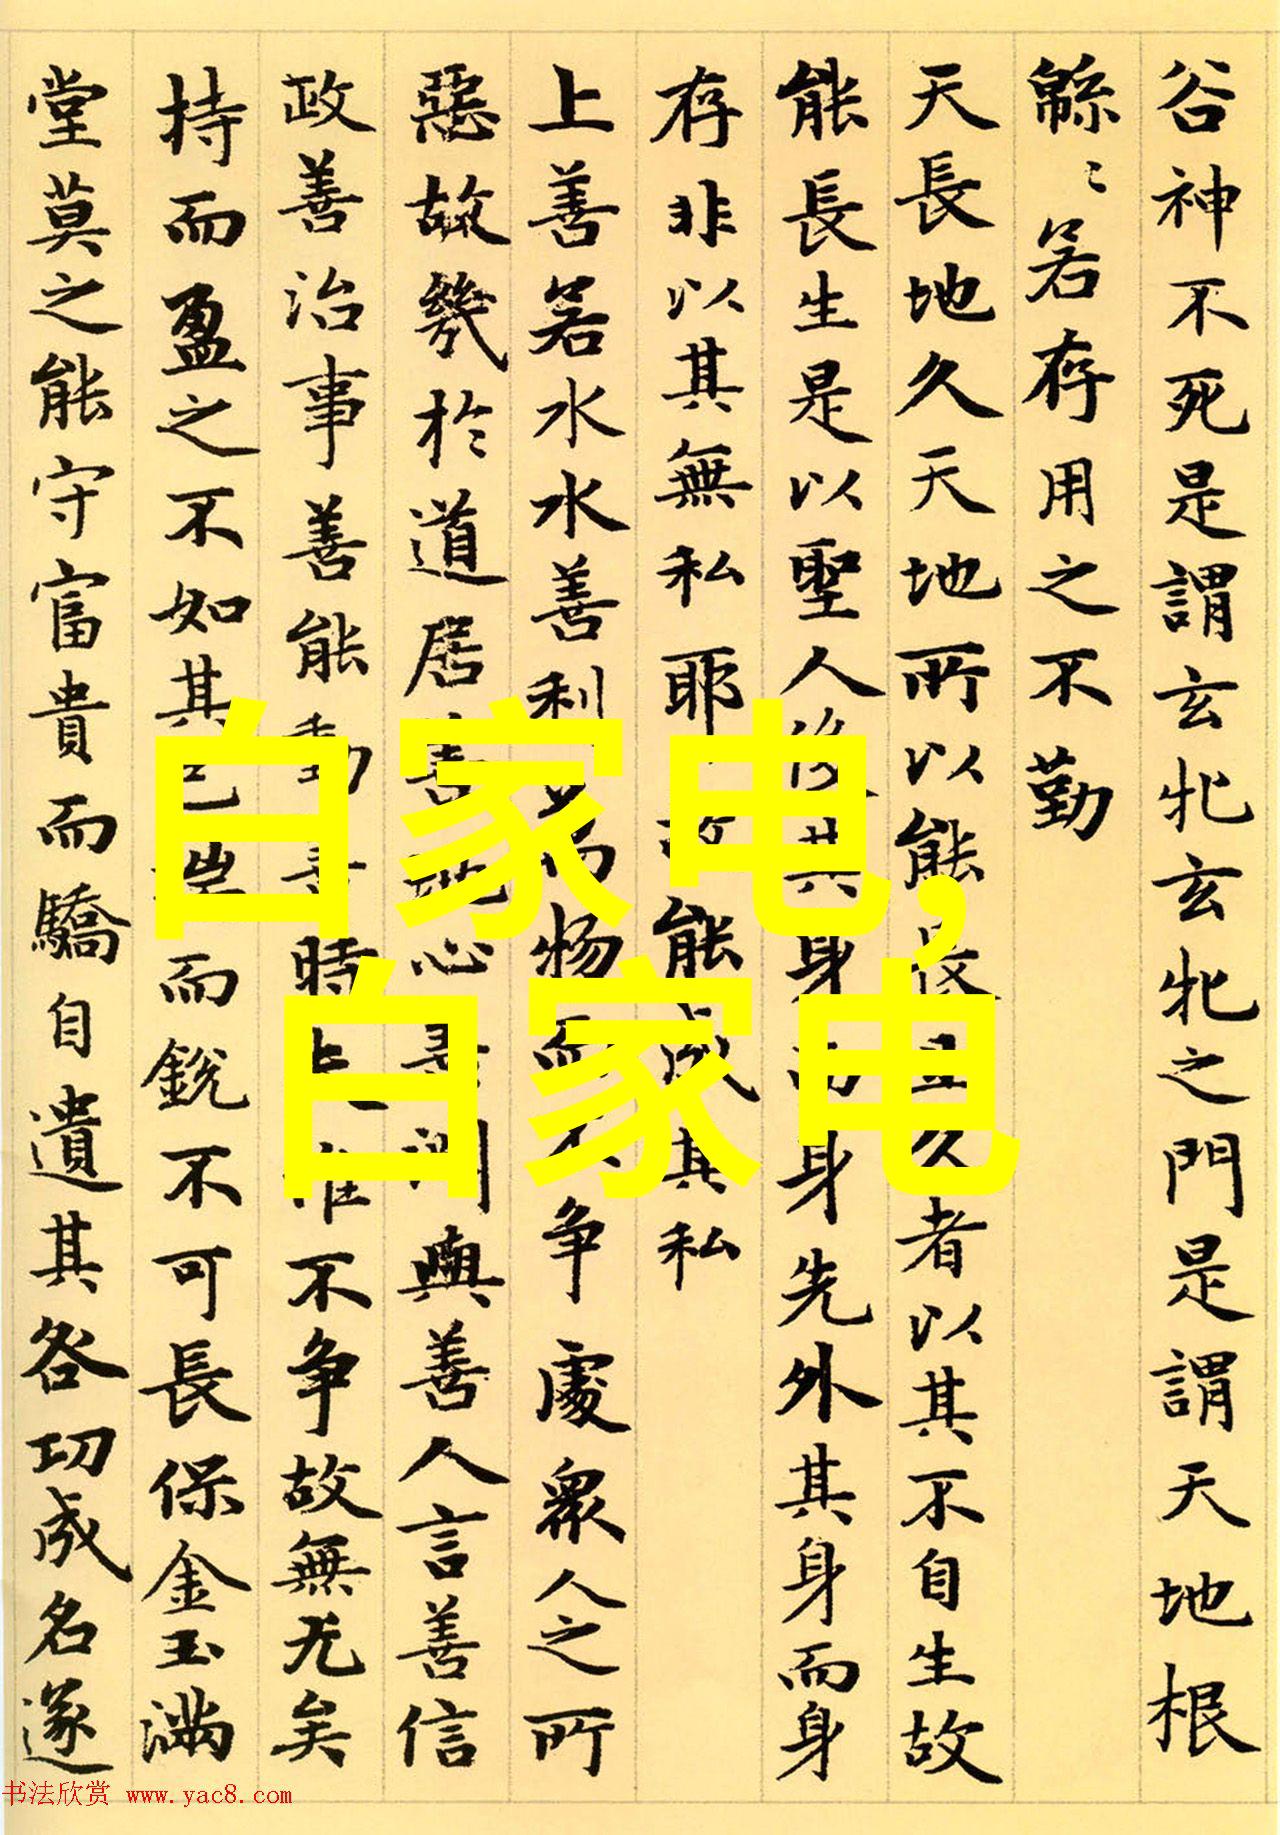 谷神不死是謂玄牝玄牝之門是謂天地根
緜〻若存用之不勤
天長地久天地所以能長且久者以其不自生故
能長生是以聖人後其身而身先外其身而身
存非以其無私耶故能成其私
上善若水水善利萬物而不争處衆人之所
惡故幾於道居善地心善淵與善人言善信
政善治事善能動善時夫唯不争故無尤矣
持而盈之不如其已揣而銳不可長保金玉滿
堂莫之能守富貴而驕自遺其咎功成名遂
白家电,
白家电
书法欣赏 www.yac8.com